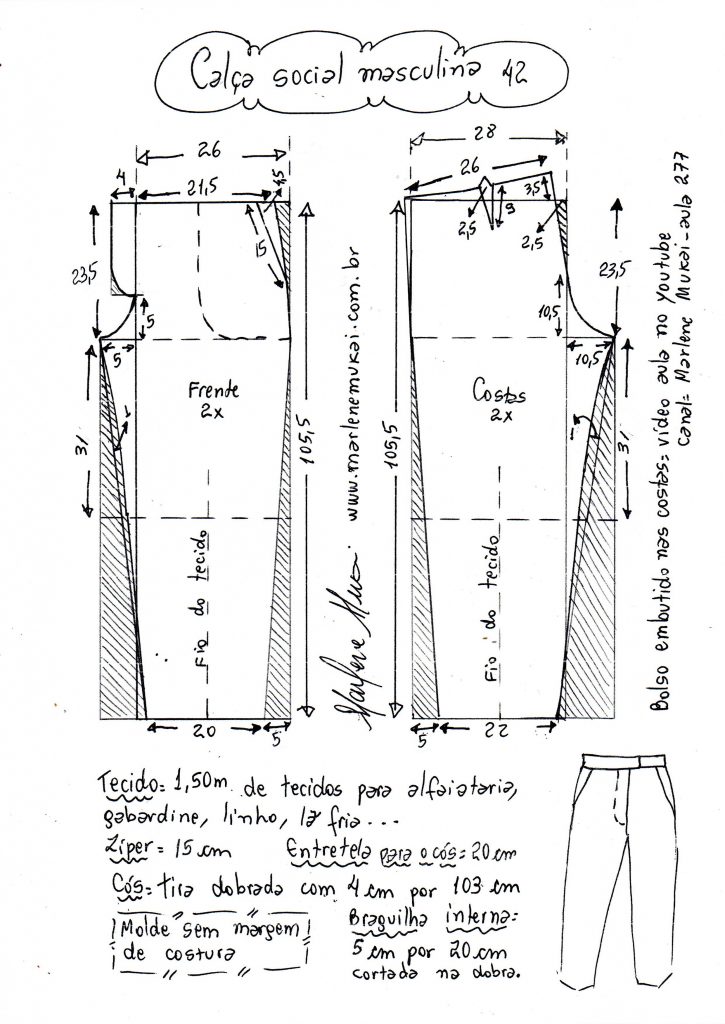 Calça social masculina 42
26
4
21,5
4,5
15
23,5
5
5
31
1
Frente
2x
105,5
Fio do tecido
20
5
www.marlenemukai.com.br
Marlene Mukai
28
26
2,5
9
3,5
2,5
23,5
10,5
10,5
31
1
Costas
2x
105,5
Fio do tecido
5
22
Bolso embutido nas costas= vídeo aula no youtube
canal= Marlene Mukai-aula 277
Tecido= 1,50m de tecidos para alfaiataria,
gabardine, linho, lã fria...
Zíper= 15 cm
Entretela para o cós= 20cm
Cós= tira dobrada com 4 cm por 103 cm
Molde sem margem
de costura
Braguilha interna=
5 cm por 20 cm
cortada na dobra.